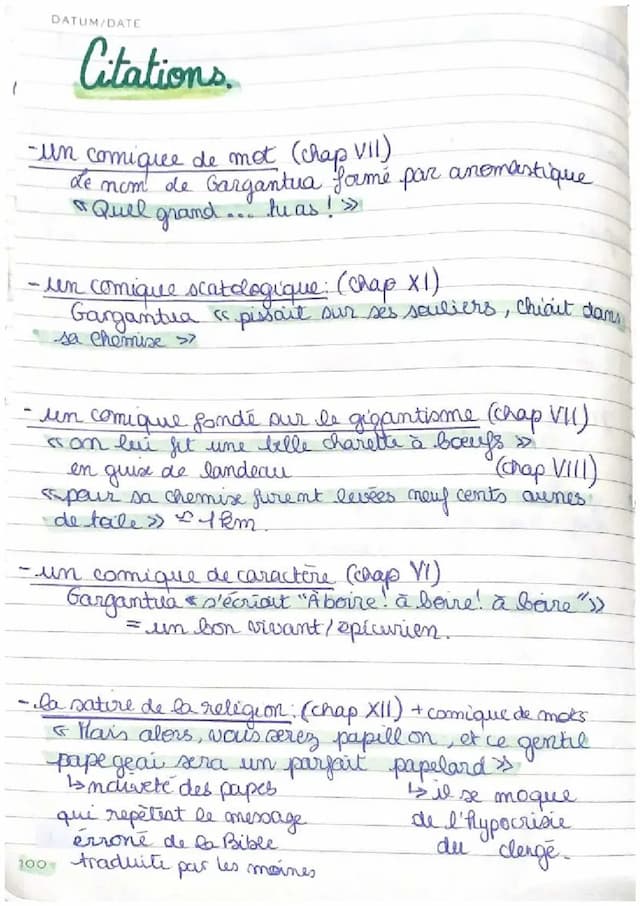 DATUM/DATE
Citations.
- un comique de mot (chap VII)
Le nom de Gargantua formé par anomastique
« Quel grand ... tu as ! »
- un comique scatologique : (chap XI)
Gargantua « pissait sur ses souliers, chiait dans
sa chemise »
- un comique fondé sur le gigantisme (chap VII)
« on lui fit une belle charette à bœufs »
en guise de landau (chap VIII)
« pour sa chemise furent levées neuf cents aunes
de toile » ≃ 1km.
- un comique de caractère (chap VI)
Gargantua « s'écriait "À boire! à boire! à boire" »
= un bon vivant/épicurien.
- la satire de la religion : (chap XII) + comique de mots
« Mais alors, vous serez papillon, et ce gentil
papegeai sera un parfait papelard »
↳ naïveté des papes ↳ il se moque
qui repètent le message de l'hypocrisie
érroné de la Bible du clergé.
traduite par les moines
100